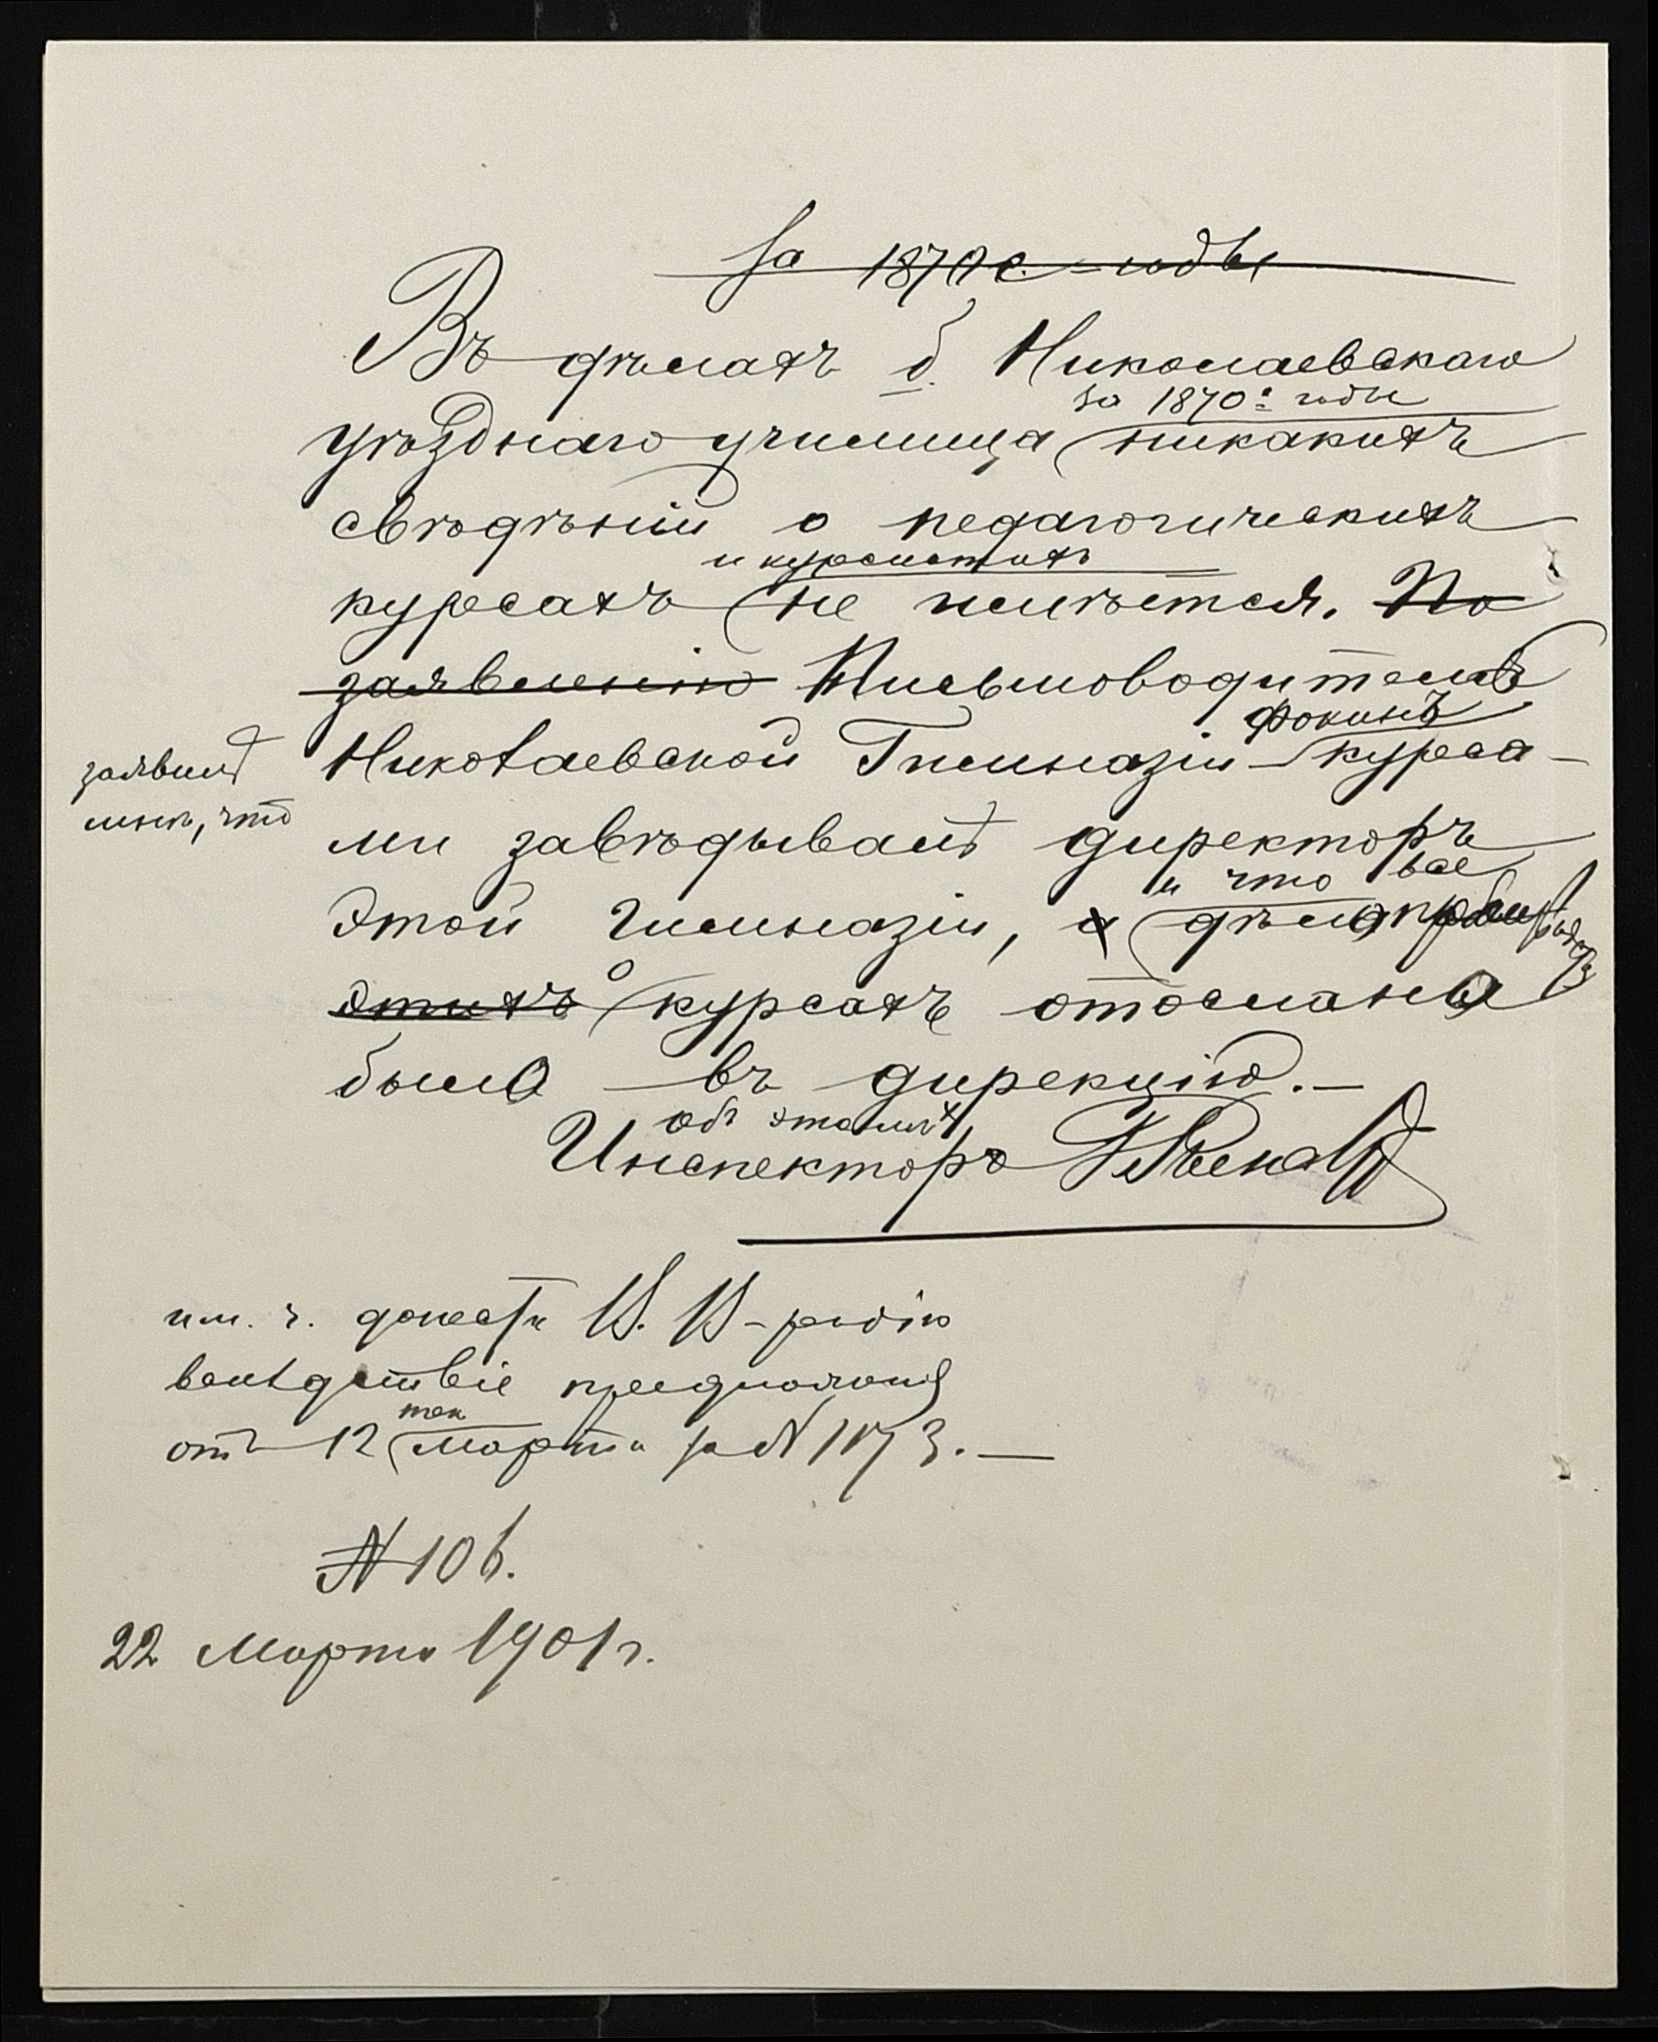 за 1870е годы
Въ дѣлахъ б. Николаевскаго
за 1870е годы
уѣзднаго училища никакихъ
свѣдѣній о педагогическихъ
и курсистахъ
курсахъ не имѣется. По
заявленію Письмоводитель
Фокинъ
заявилъ Николаевской Гимназіи курса-
мнѣ, что ми завѣдывалъ директоръ
и что все
этой гимназіи, а дѣло
этихъ о курсахъ отослано
было въ дирекцію.—
Объ этомъ
Инспекторъ
им. ч. донести В. В-родію
вслѣдствіе предложенія
тек
отъ 12 Марта за № 1173.—
№ 106.
22 Марта 1901 г.